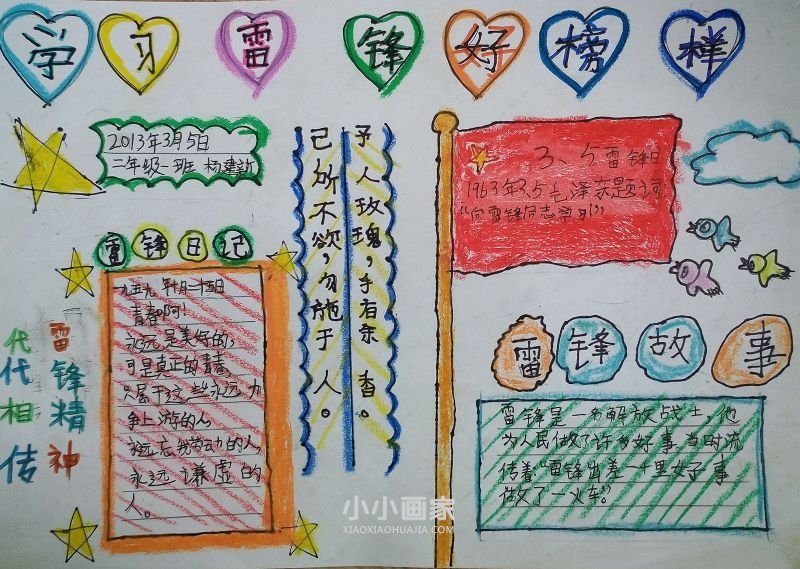 学习雷锋好榜样
2013年3月5日
二年级一班 杨建新
雷锋日记
一九五九年十月二十五日
青春啊!
永远是美好的,
可是真正的青春,
只属于这些永远力
争上游的人,
永远忘我劳动的人,
永远谦虚的
人。
雷锋精神
代代相传
予人玫瑰,手有余香。
己所不欲,勿施于人。
3、5雷锋日
1963年3.5毛泽东题词
“向雷锋同志学习”
雷锋故事
雷锋是一名解放战士,他
为人民做了许多好事,当时流
传着“雷锋出差一千里好事
做了一火车”。
小小画家
XIAOXIAOHUAJIA.COM